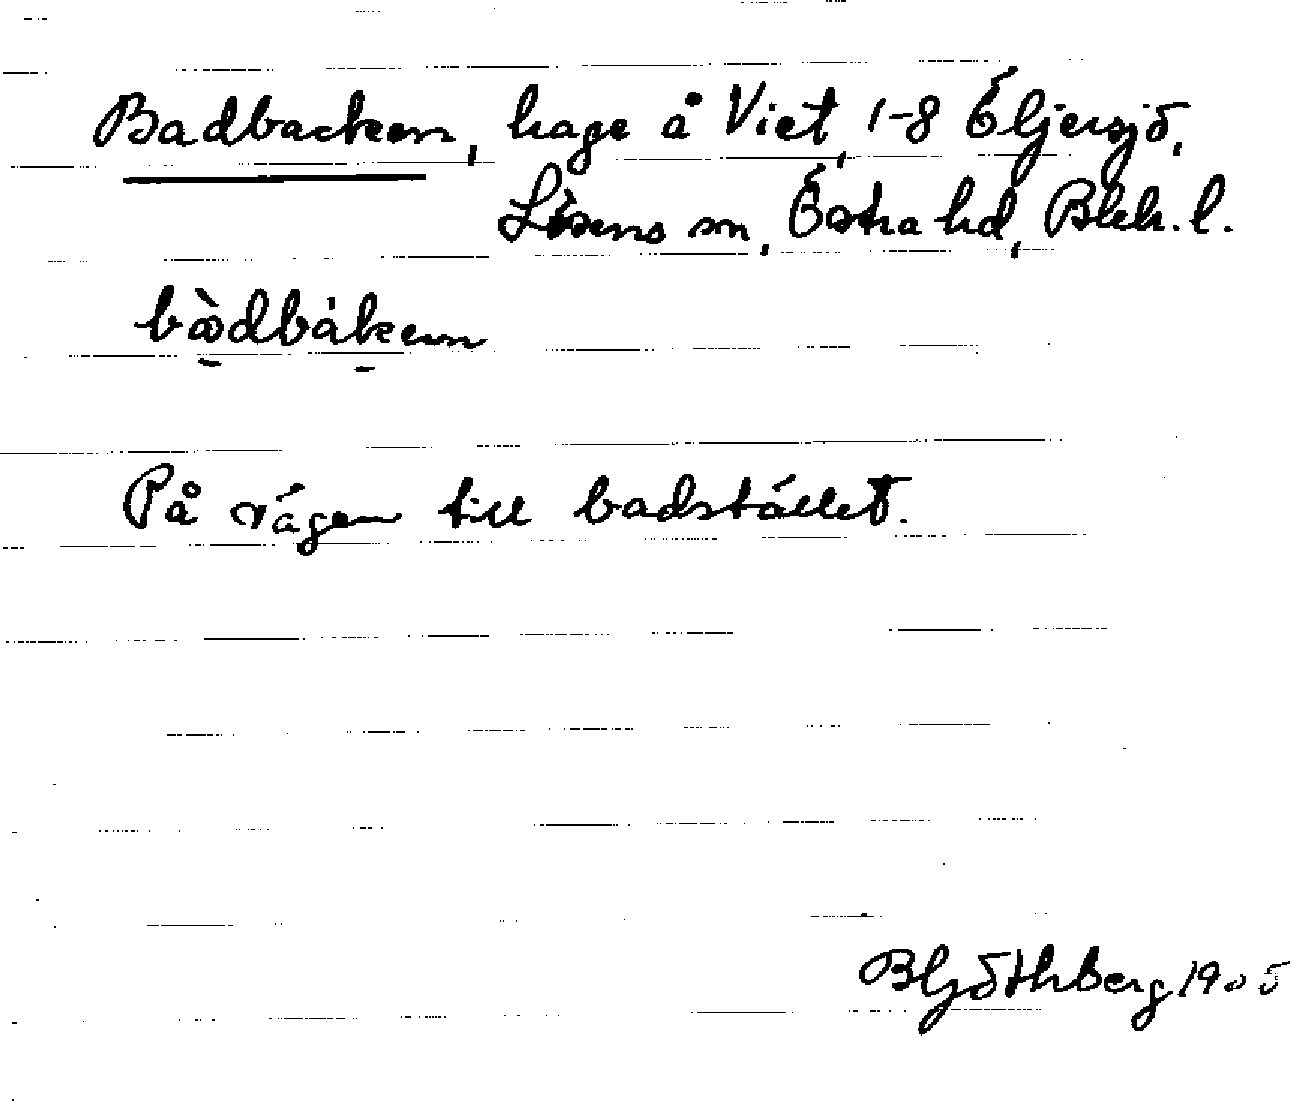 Badbacken, hage å Viet, 1-8 Öljersjö,
Lösens sn, Östra hd, Blek. l.
bàdbàken
På vägen till badstället.
B Göthberg 1905